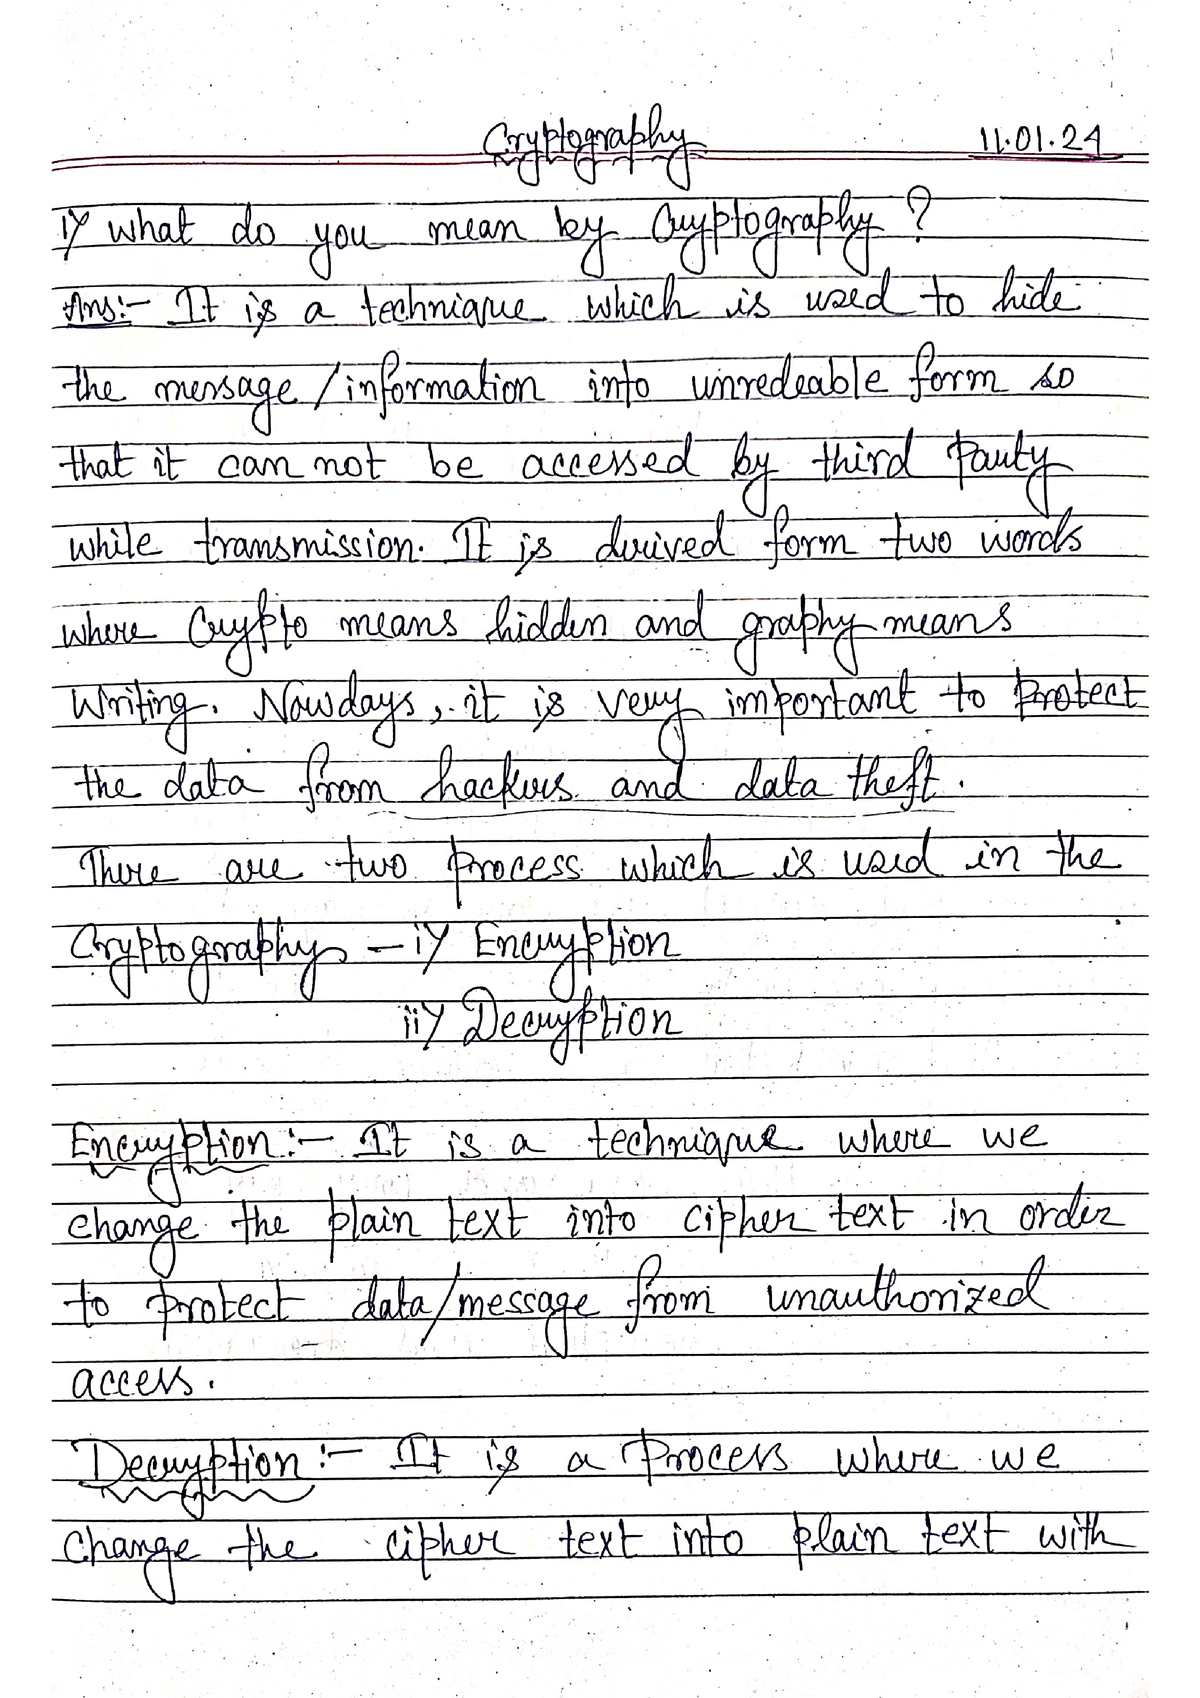 Cryptography 11.01.24
i) what do you mean by Cryptography ?
Ans:- It is a technique which is used to hide
the message/information into unredeable form so
that it can not be accessed by third Party
while transmission. It is derived form two words
where Crypto means hidden and graphy means
Writing. Nowdays, it is very important to Protect
the data from hackers and data theft.
There are two Process which is used in the
Cryptography - i) Encryption
ii) Decryption
Encryption :- It is a technique where we
change the plain text into cipher text in order
to protect data/message from unauthorized
access.
Decryption :- It is a Process where we
change the cipher text into plain text with